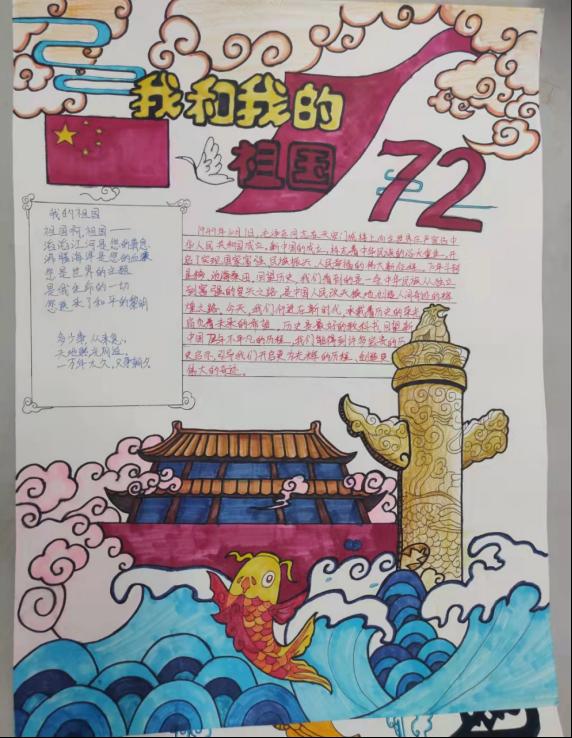 我和我的
祖国
72
我的祖国
祖国啊,祖国——
滔滔江河是您的
海是您的血
您是世界的主题
是我生命的一切
您迎来了和平的黎明
多少事,从来急,
天地转,光阴迫。
一万年太久,只争朝夕
1949年10月1日,毛泽东同志在天安门城楼上向全世界庄严宣告中
华人民共和国成立,新中国的成立,标志着中华民族的伟大复兴,开
启了实现国家富强、民族振兴、人民幸福的伟大新征程。72年斗转
星移,沧海桑田,回望历史,我们看到的是一条中华民族从独立
到富强的复兴之路,是中国人民汉天换地,创造人间奇迹的辉
煌之路。今天,我们行进在新时代,承载着历史的荣光
肩负着未来的希望,历史是最好的教科书,回望新
中国72年不平凡的历程,我们能得到许多宝贵的历
史启示,引导我们开启更为光辉的历程,创造更
伟大的奇迹。